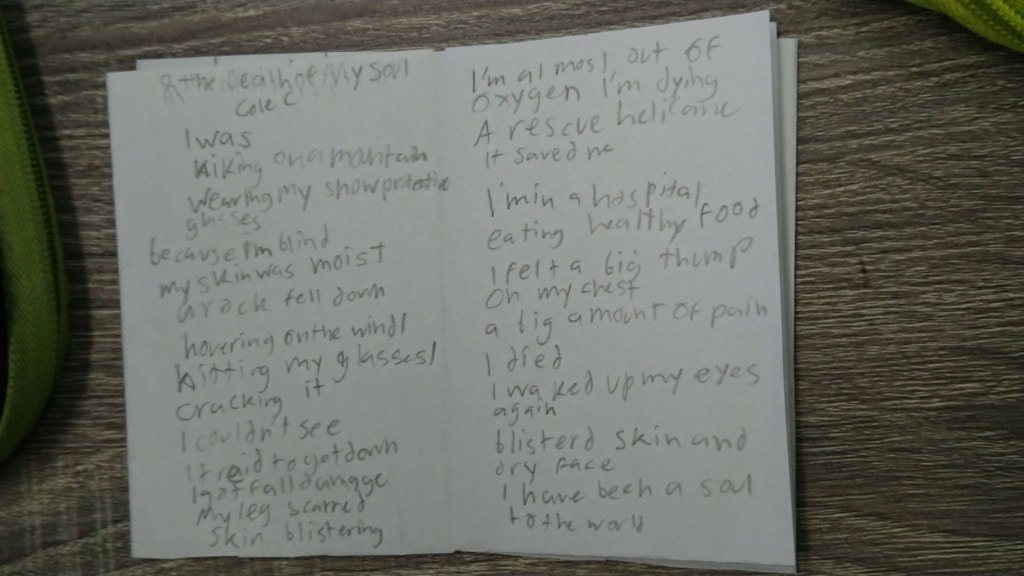 & the Death of My soul
Cole C
I was
Hiking on a mountain
wearing my snow protective
glasses
because I'm blind
my skin was moist
a rock fell down
hovering on the wind/
hitting my glasses/
cracking it
I couldn't see
I traid to get down
I got fall damgge
My leg scarred
skin blistering
I'm almost out of
oxygen I'm dying
A rescue helicame
It saved me
I'm in a hospital
eating healthy food
I felt a big thump
on my chest
a big amount of pain
I died
I waked up my eyes
again
blisterd skin and
dry face
I have been a soul
to the world